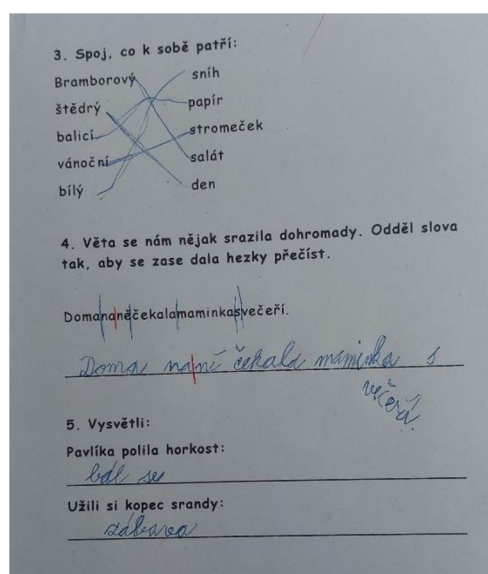 3. Spoj, co k sobě patří:
Bramborový sníh
štědrý papír
balicí stromeček
vánoční salát
bílý den
4. Věta se nám nějak srazila dohromady. Odděl slova
tak, aby se zase dala hezky přečíst.
Domananěčekalamaminkasvečeří.
Doma na ní čekala maminka s
večeří.
5. Vysvětli:
Pavlíka polila horkost:
bál se
Užili si kopec srandy:
zábava